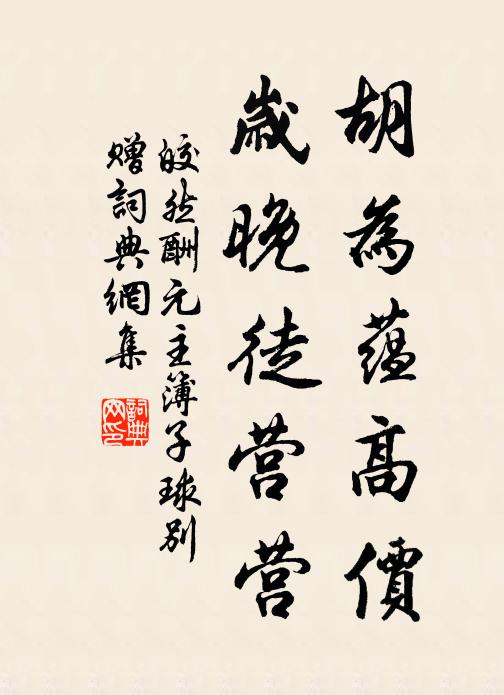 胡為蘊高價
歲晚徒營營
皎然酬元主簿子球別
贈詞典網集
詞典網印